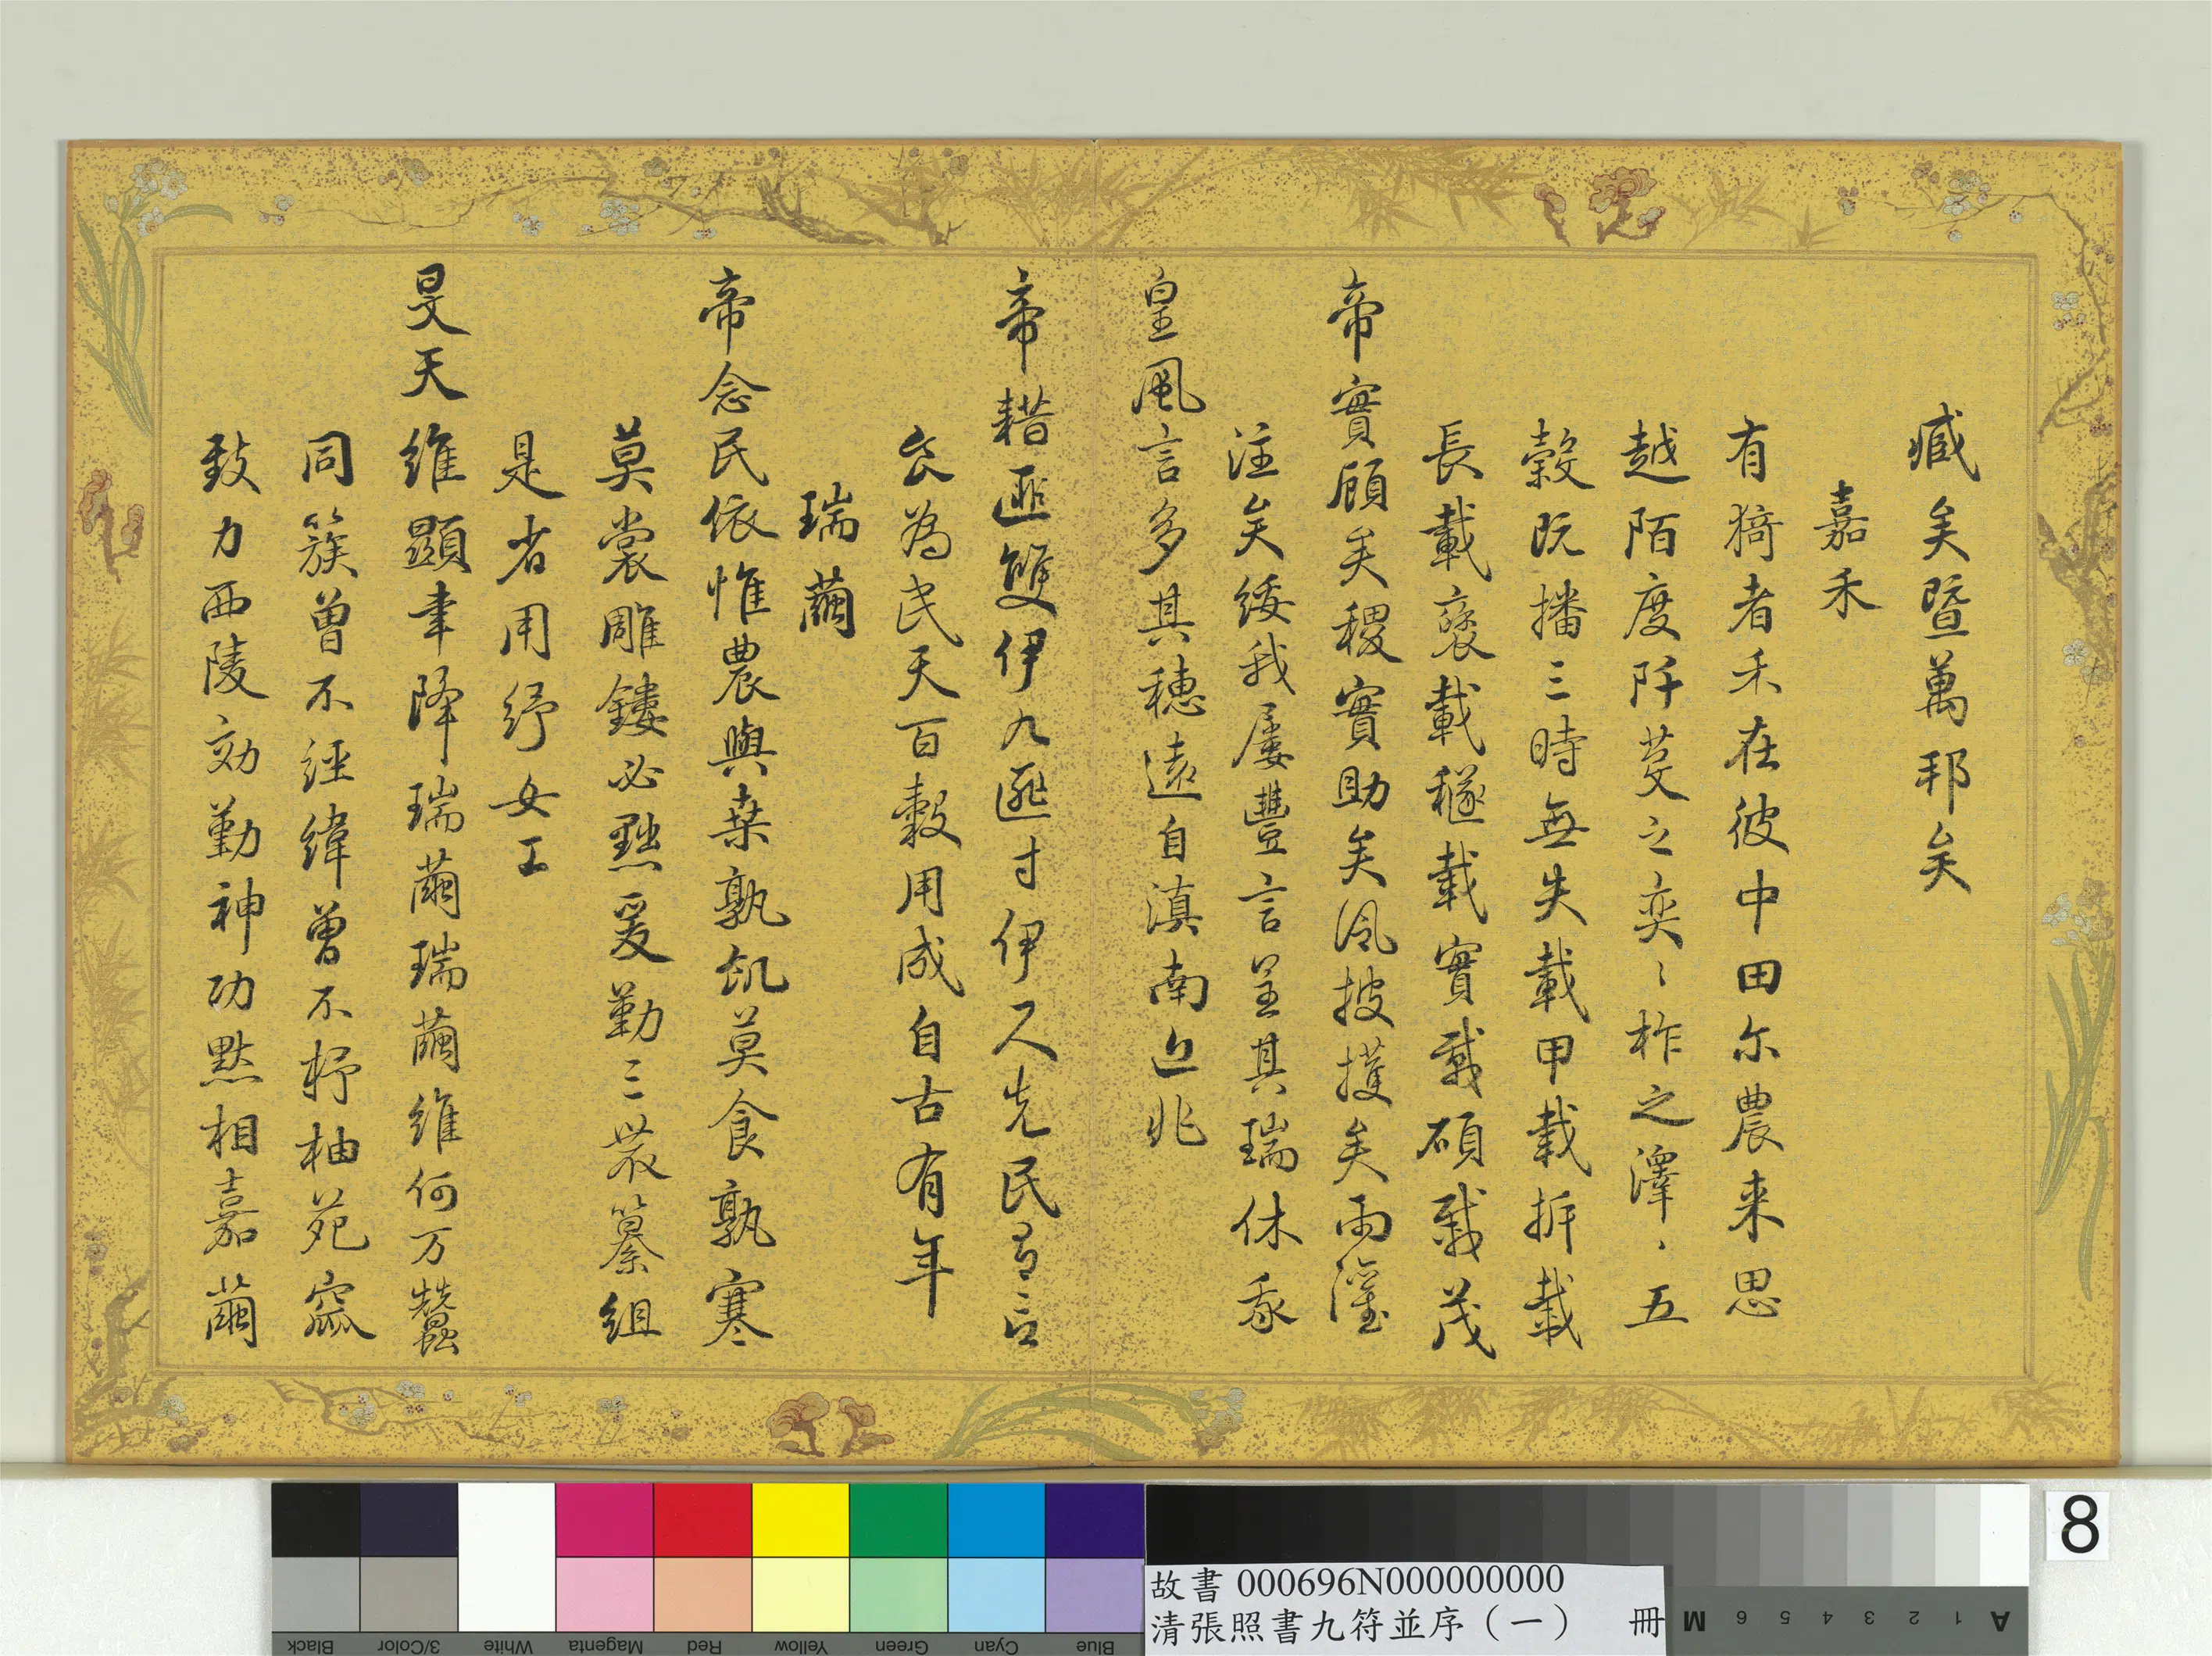 臧矣暨萬邦矣
嘉禾
有猗者禾在彼中田尒農来思
越陌度阡芟之奕〻柞之澤〻五
穀既播三時無失載甲載拆載
長載襃載穟載實載碩載茂
帝實顧矣稷實助矣風披擭矣雨灌
注矣綏我屢豐言呈其瑞休哉
皇風言多其穗遠自滇南近兆
帝耤匪雙伊九匪寸伊尺先民有言
食為民天百穀用成自古有年
瑞繭
帝念民依惟農與桒孰飢莫食孰寒
莫裳雕鏤必黜爰勤三農纂組
是省用紓女工
旻天維顯聿降瑞繭瑞繭維何万蠶
同簇曾不經緯曾不杼柚苑窳
致力西陵効勤神功黙相嘉繭
8
故書 000696N000000000
清張照書九符並序（一） 冊
Black
3/Color
White
Magenta
Red
Yellow
Green
Cyan
Blue
M 6 5 4 3 2 1 A